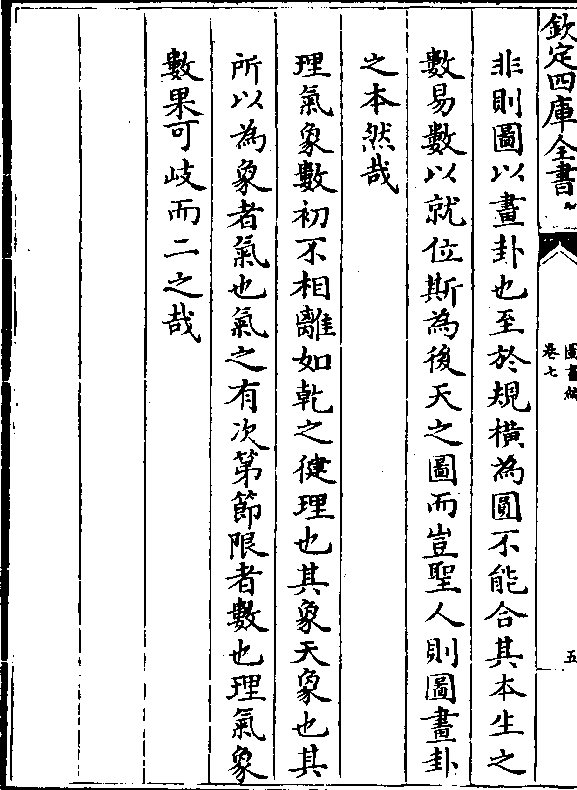 欽定四庫全書
圖書編
卷七
五
非則圖以畫卦也至於規橫為圓不能合其本生之
數易數以就位斯為後天之圖而豈聖人則圖畫卦
之本然哉
理氣象數初不相離如乾之健理也其象天象也其
所以為象者氣也氣之有次第節限者數也理氣象
數果可歧而二之哉